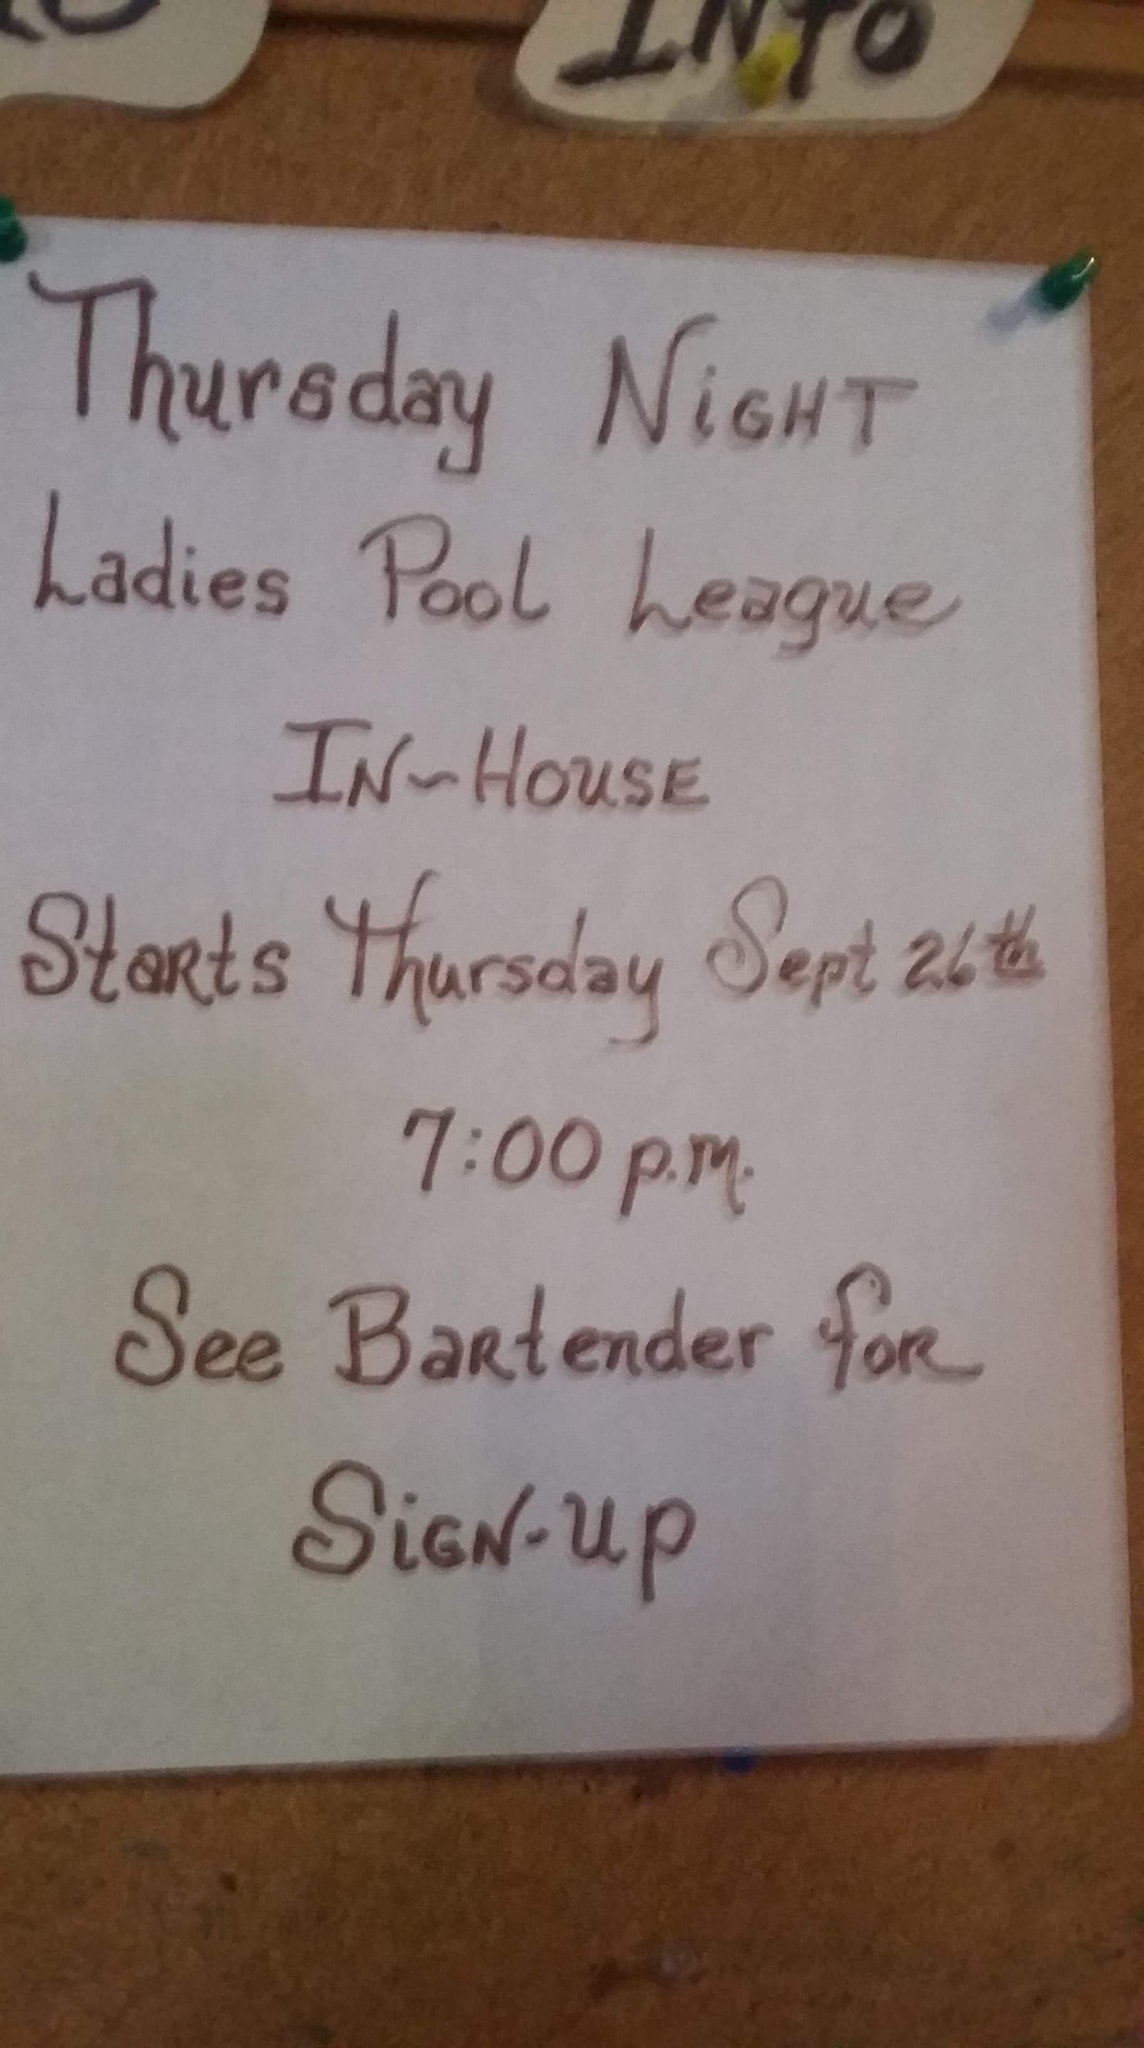 INFO
Thursday NiGHT
Ladies Pool League
IN-HOUSE
Starts Thursday Sept 26th
7:00 p.m.
See Bartender for
SiGN-up